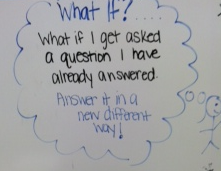 What If?....
What if I get asked
a question I have
already answered.
Answer it in a
new different
way!